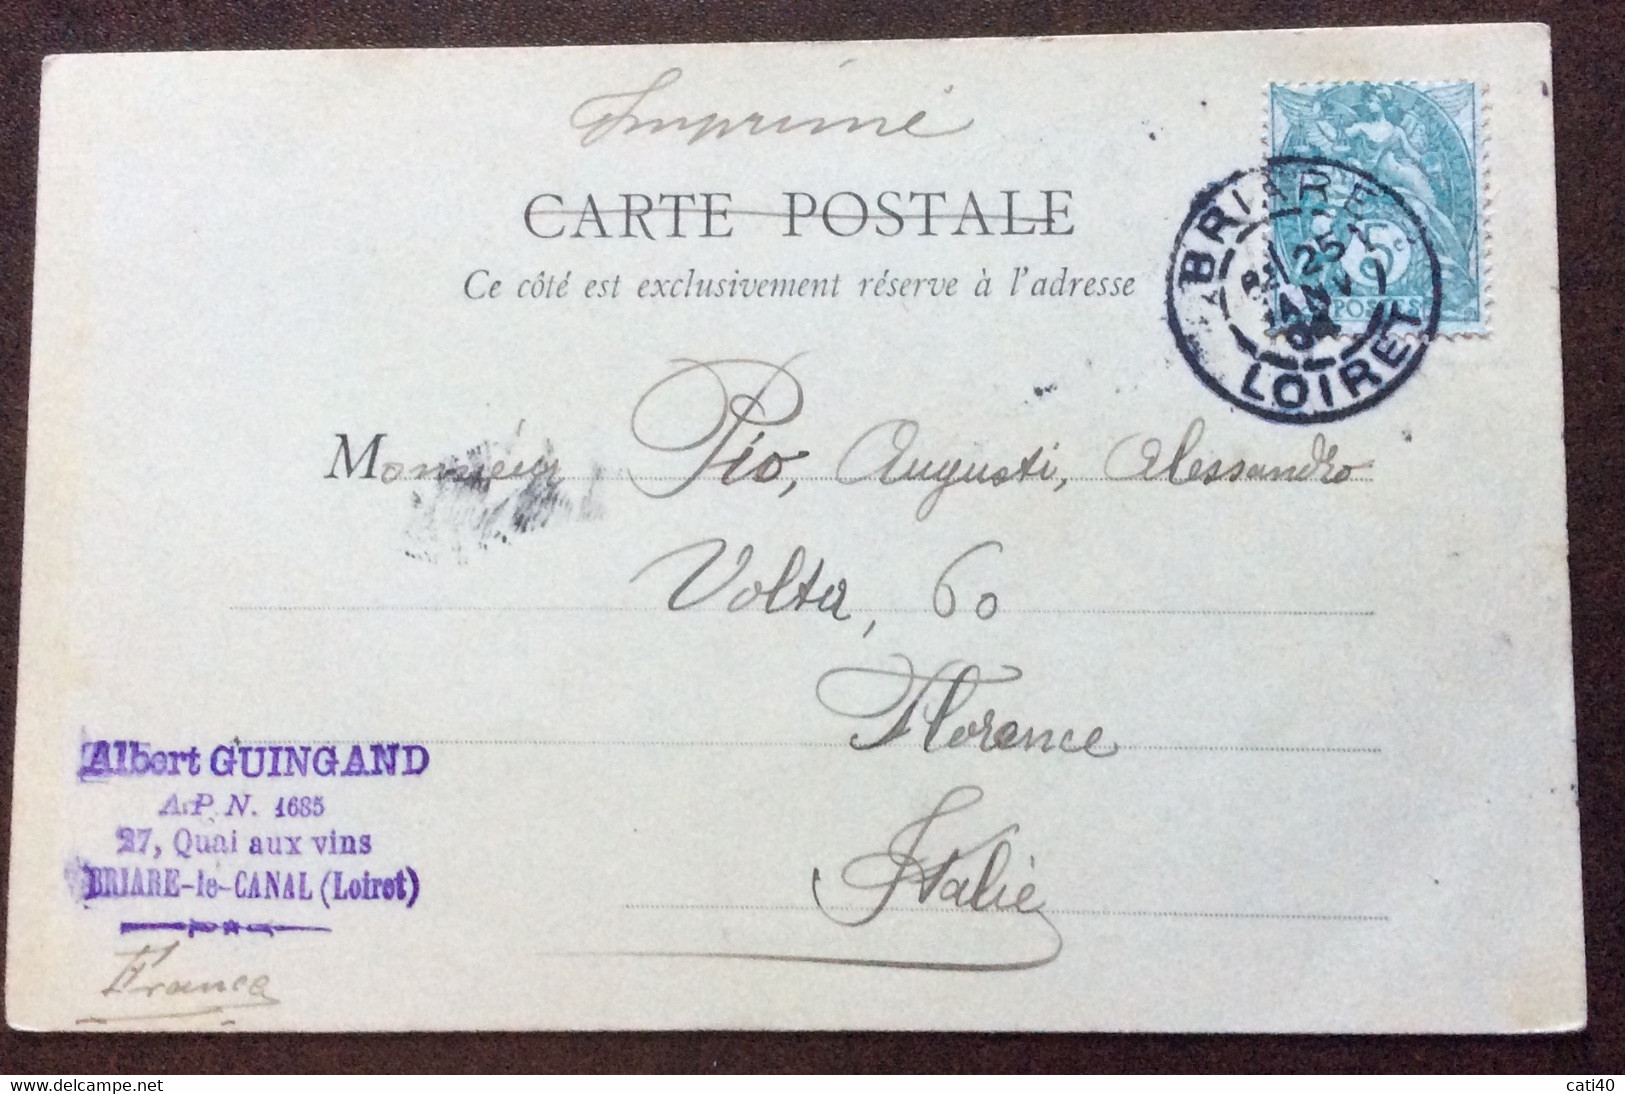 Imprimé
CARTE POSTALE
Ce côté est exclusivement réserve à l'adresse
5c
POSTES
BRIARE
25
JANV
LOIRET
Monsieur Pio, Augusti, Alessandro
Volta, 60
Florence
Italie
Albert GUINGAND
A.P.N. 1685
27, Quai aux vins
BRIARE-le-CANAL (Loiret)
France
cati40